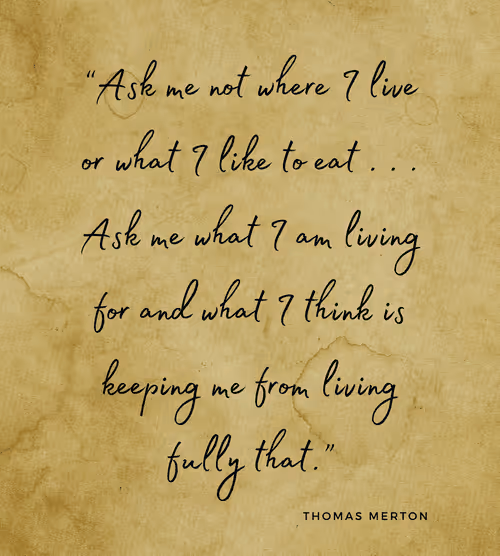 “Ask me not where I live
or what I like to eat . . .
Ask me what I am living
for and what I think is
keeping me from living
fully that.”
THOMAS MERTON